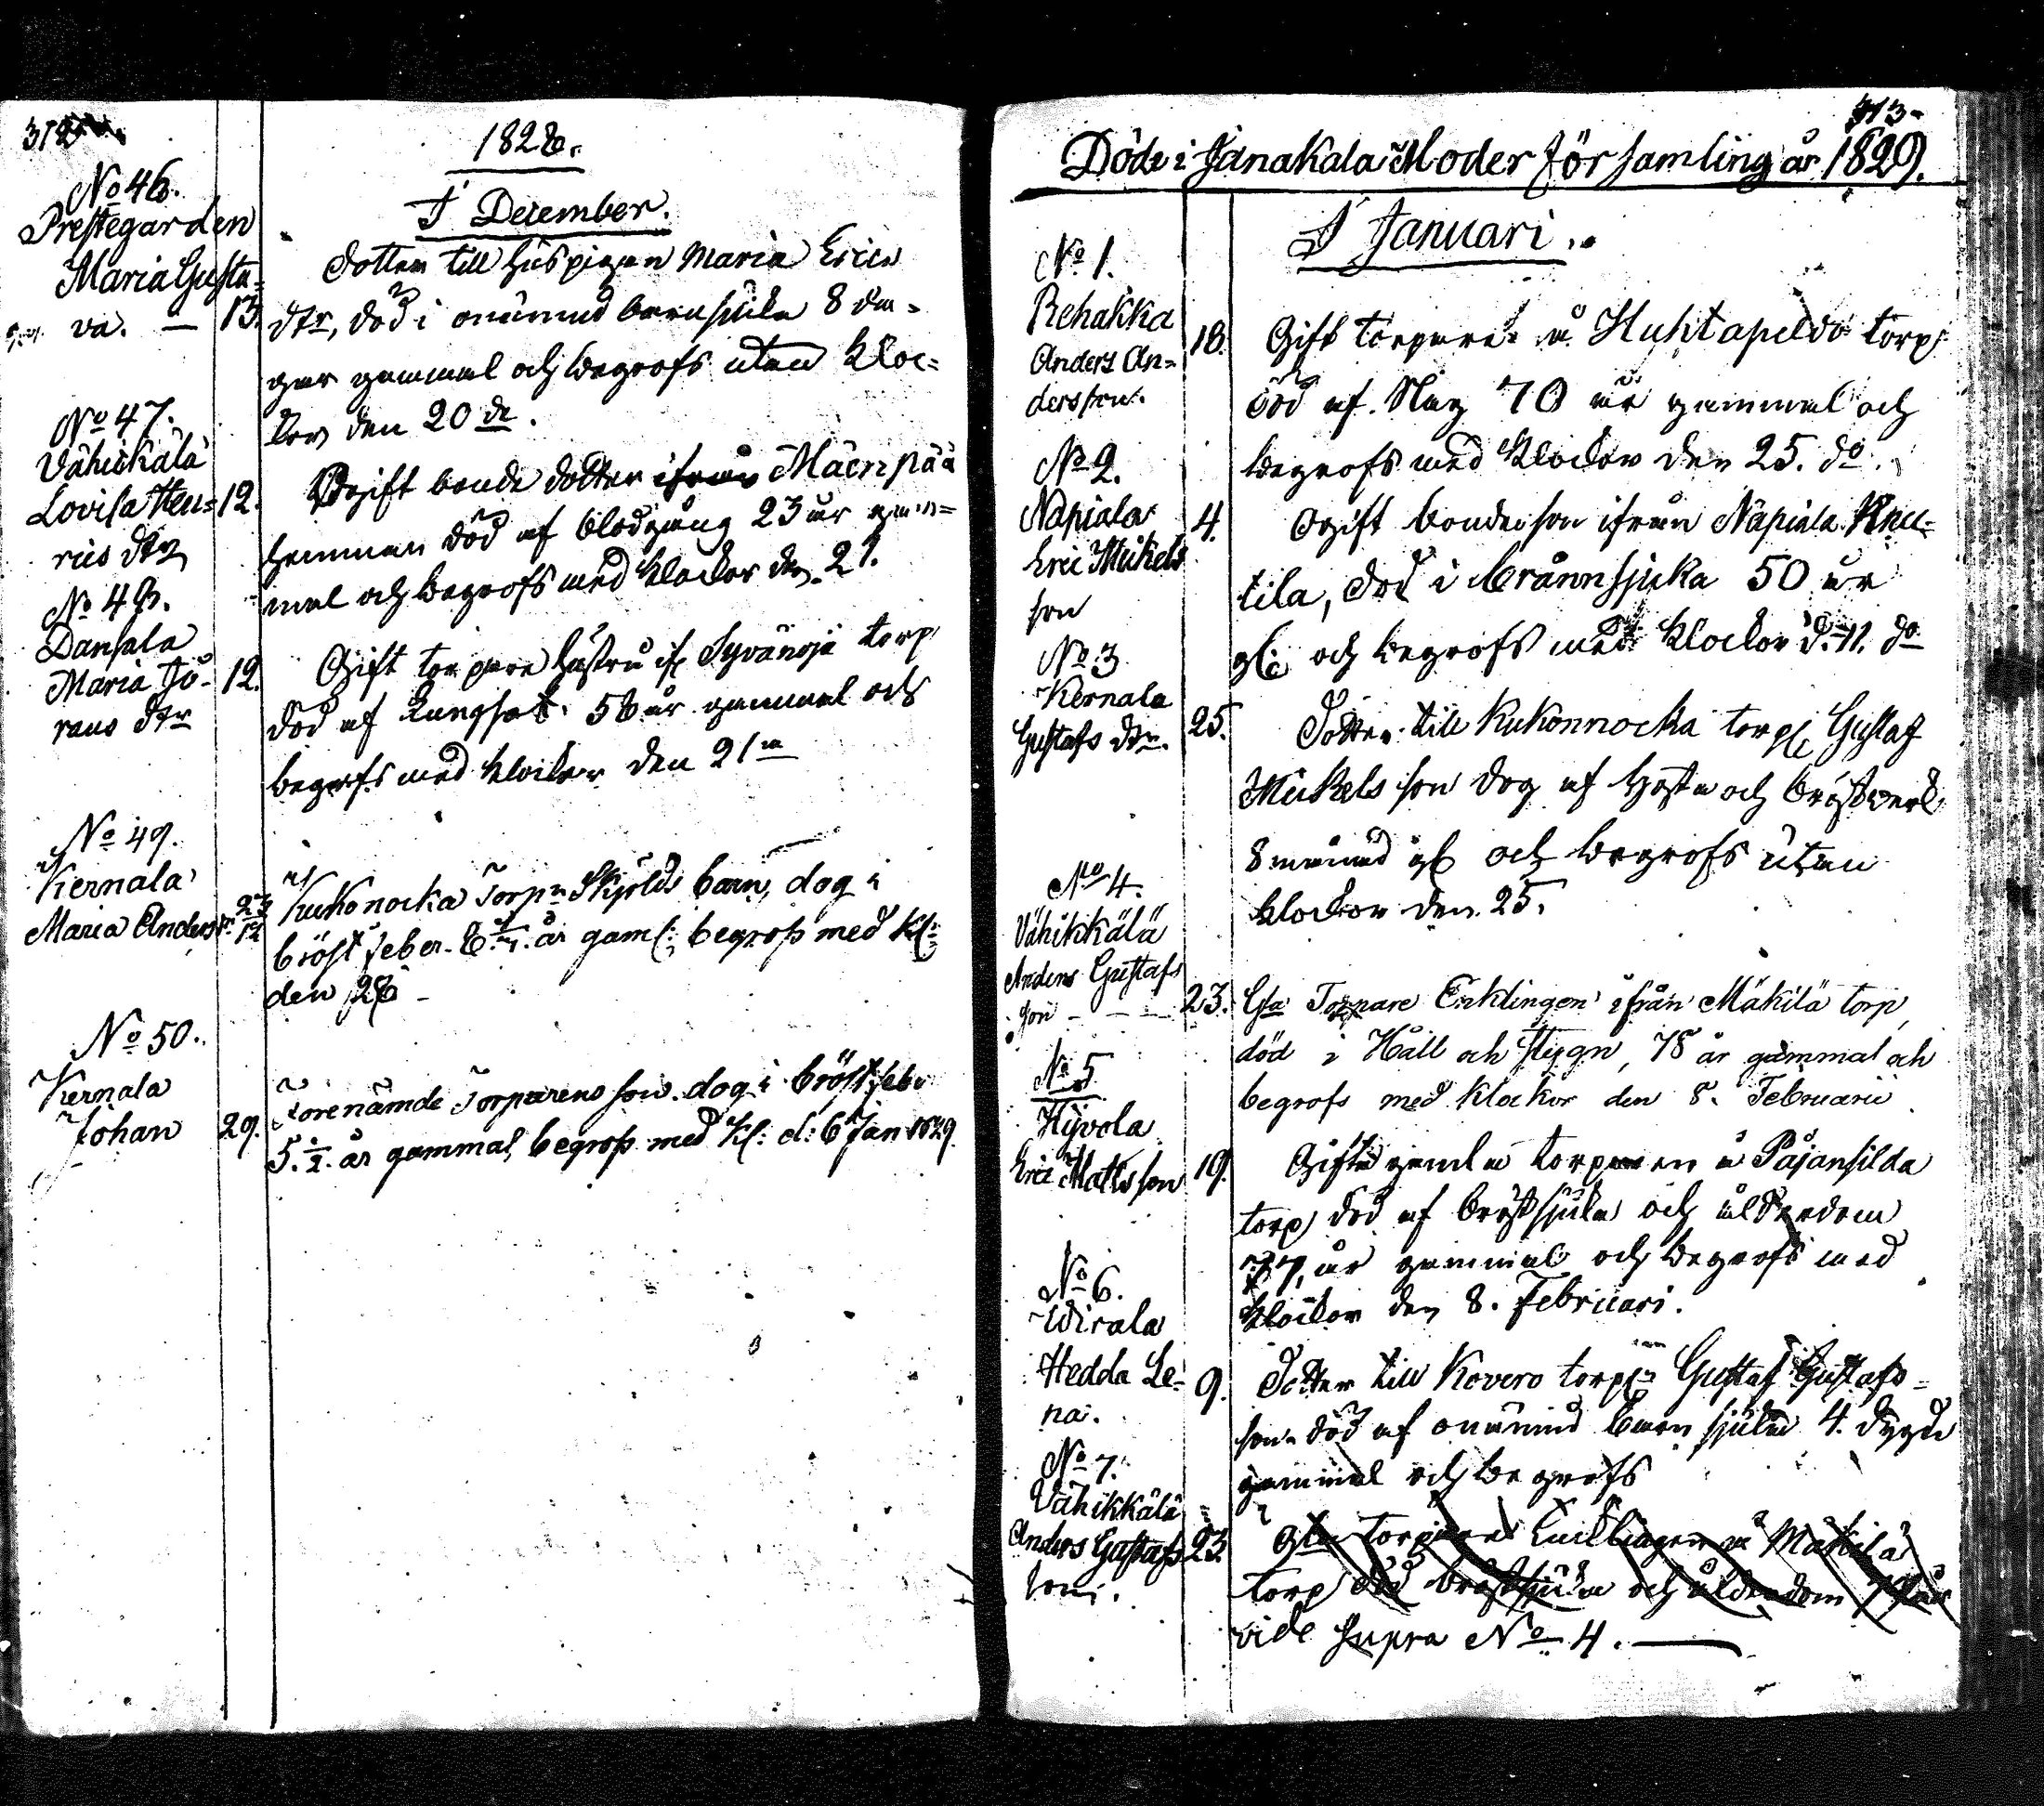 312
1828.
I December.
No 46.
Prestegården
Maria Gusta=
va. — 13.
Dotter till huspigan Maria Erics
dtr, död i onämnd barnsjuka 8 da=
gar gammal och begrofs utan kloc=
kor den 20 de.
No 47.
Vähickälä
Lovisa Hen= 12.
rics dtr
Ogift bonde dotter ifrån Mäenpää
hemman död af blodgång 23 år gam=
mal och begrofs med klockor den 21.
No 48.
Dansala
Maria Jö= 12.
rans dtr
Gift torpare hustru if Syvänoja torp
död af Lungsot. 58 år gammal och
begrofs med klockor den 21
No 49.
Kernala
Maria Anders dr. 23/12
Kukonocka Torpn Skjölds barn, dog i
bröst feber. år gaml: begrofs med Kl:
den 28
No 50.
Kernala
Johan 29.
Förenämde Torparens son dog i bröstfeb.
5. 1/2. år gammal, begrofs med Kl: d: 6 Jan 1829.
313
Döde i Janakala Moder församling år 1829.
I Januari.
No 1.
Rehakka
Anders An=
dersson.
18. Gift torpare å Huhtapeldo torp
död af Slag 70 år gammal och
begrofs med klockor den 25. do.
No 2.
Napiala
Eric Mickels
son
4. Ogift bondeson ifrån Napiala Knu=
tila, död i brånnsjuka 50 år
gl: och begrofs med klockor d. 11. do
No 3
Kernala
Gustafs dtr.
25. Dotter till Kukonnocka torp Gustaf
Mickels son dog af hosta och bröstverk
8 månad gl och begrofs utan
klockor den 25.
No 4.
Vähikkälä
Anders Gustafs
son — — — 23.
Gla Torpare Enklingen ifrån Mäkilä torp,
död i Håll och Stygn, 78 år gammal och
begrofs med klockor den 8. Februarii
No 5
Hyvola
Eric Matts son 19.
Gifte gamla torparen å Pajansilda
torp död af bröstsjuka och ålderdom
77, år gammal och begrofs med
klockor den 8. Februari.
No 6.
Wirala
Hedda Le=
na.
9. Dotter till Kovero torp Gustaf Gustafs=
son död af onämnd barnsjuka 4. dygn
gammal och begrofs
No 7.
Vähikkälä
Anders Gustafs 23.
son.
Gla torpare Encklingen å Mäkilä
torp död bröstsjuka och ålderdom 77 år
vide supra No 4.